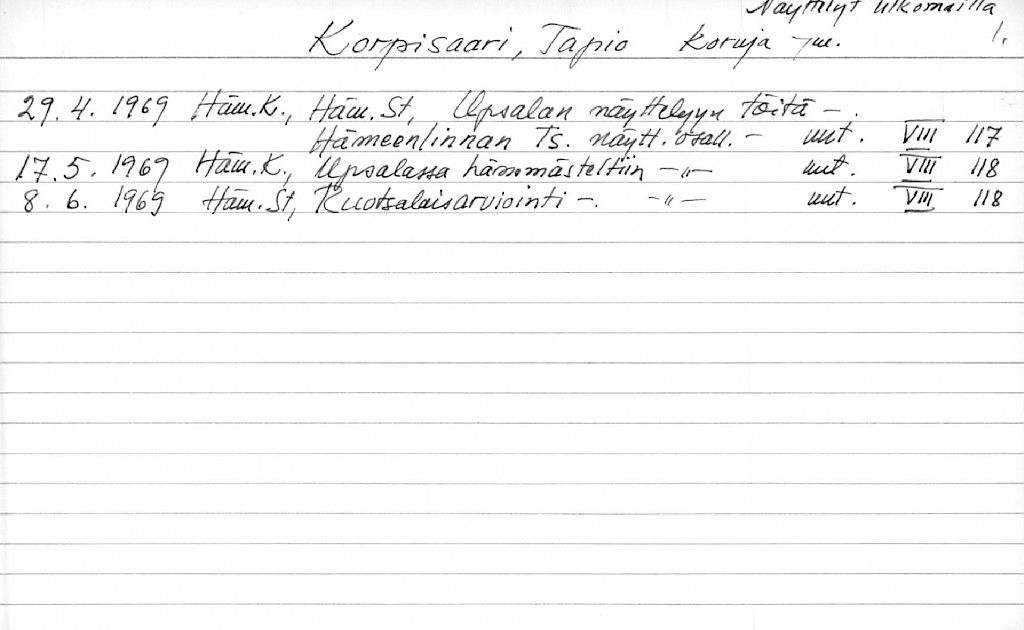 Näyttelyt ulkomailla
Korpisaari, Tapio koruja ym. 1.
29.4.1969 Häm.K., Häm.St, Upsalan näyttelyyn töitä –.
Hämeenlinnan Ts. näytt. osall. – uut. VIII 117
17.5.1969 Häm.K., Upsalassa hämmästeltiin –"– uut. VIII 118
8.6.1969 Häm.St, Ruotsalaisarviointi –. –"– uut. VIII 118